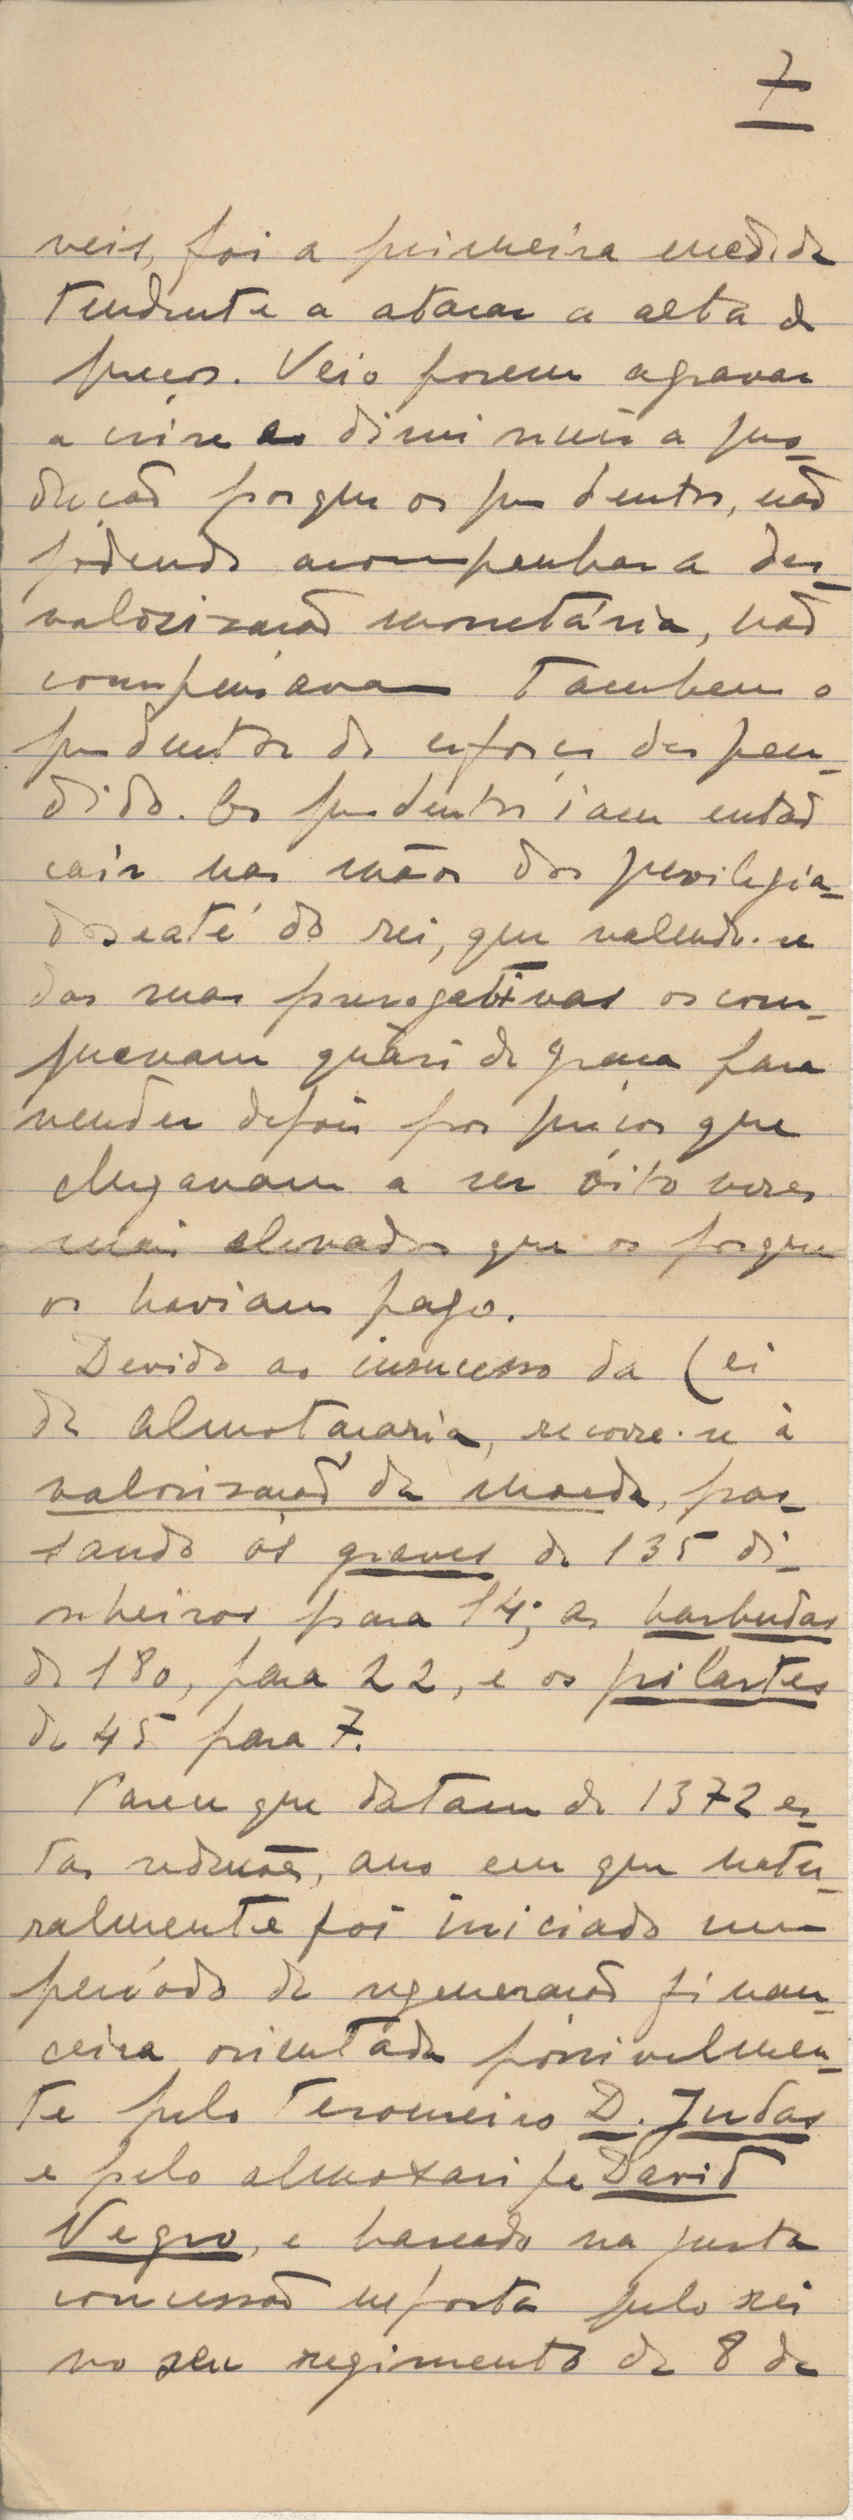 7
veis, foi a primeira medida
tendente a atacar a alta de
preços. Veio porem agravar
a crise diminuir a pro-
dução porque os productos, não
podendo acompanhar a des-
valorização monetária, não
compensavam tambem o
productor do esforço despen-
dido. Os productos iam então
cair nas mãos dos privilegia-
dos e até do rei, que valendo-se
das suas prerogativas os com-
pravam quási de graça para
vender depois por preços que
chegavam a ser oito vezes
mais elevados que os porque
os haviam pago.
Devido ao insucesso da Lei
de Almotaçaria, recorre-se à
valorização da moeda, pas-
sando os graves de 135 di-
nheiros para 14; as barbudas
de 180, para 22, e os pilartes
de 45 para 7.
Parece que datam de 1372 es-
tas reduções, ano em que natu-
ralmente foi iniciado um
período de regeneração finan-
ceira orientada possivelmen-
te pelo tesoureiro D. Judas
e pelo almoxarife David
Negro, e baseado na justa
concessão imposta pelo rei
no seu regimento de 8 de